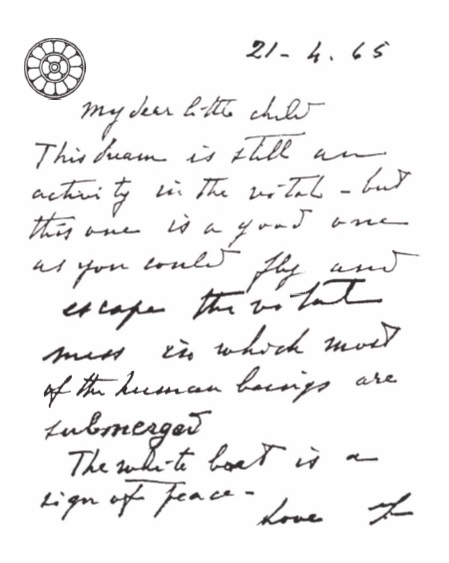 21-4.65
My dear little child
This dream is still an
activity in the vital - but
this one is a good one
as you could fly and
escape the vital
mess in which most
of the human beings are
submerged
The white boat is a
sign of peace -
Love